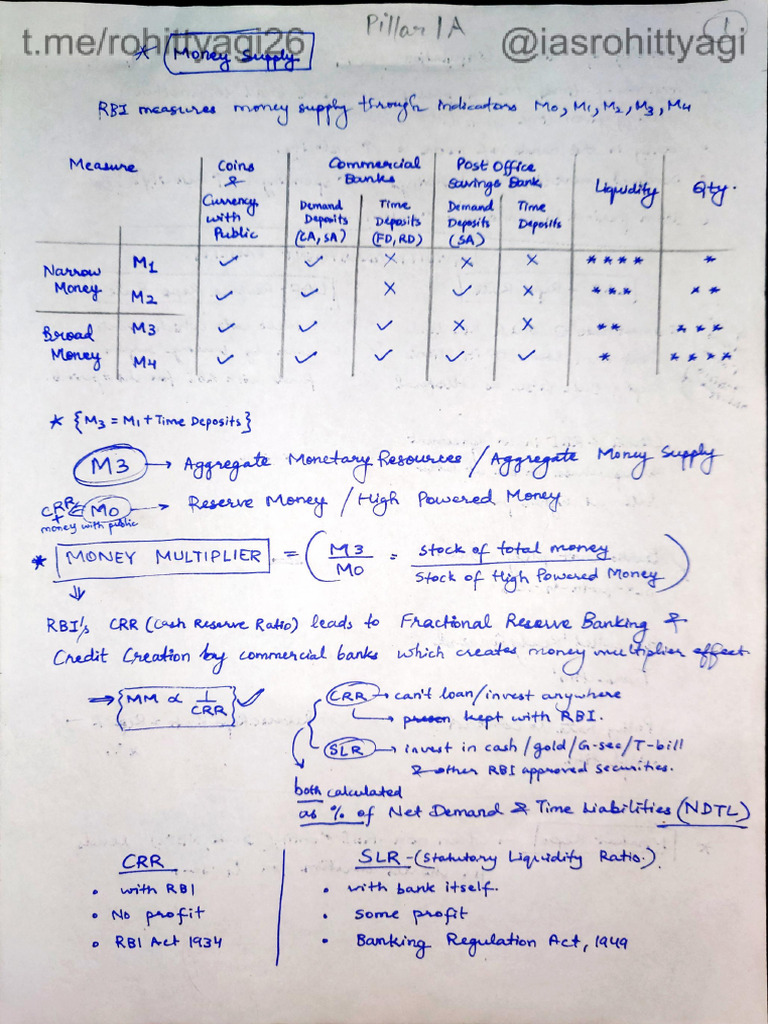 Pillar 1A
1
t.me/rohittyagi26
@iasrohittyagi
* Money Supply
RBI measures money supply through indicators M0, M1, M2, M3, M4
Measure | Coins & Currency with Public | Commercial Banks | Post Office Savings Bank | Liquidity | Qty.
Demand Deposits (CA, SA) | Time Deposits (FD, RD) | Demand Deposits (SA) | Time Deposits
Narrow Money | M1 | ✓ | ✓ | × | × | × | **** | *
M2 | ✓ | ✓ | × | ✓ | × | *** | **
Broad Money | M3 | ✓ | ✓ | ✓ | × | × | ** | ***
M4 | ✓ | ✓ | ✓ | ✓ | ✓ | * | ****
* {M3 = M1 + Time Deposits}
M3 → Aggregate Monetary Resources / Aggregate Money Supply
CRR + money with public ⇐ M0 → Reserve Money / High Powered Money
* MONEY MULTIPLIER = ( M3 / M0 = Stock of total money / Stock of High Powered Money )
⇓
RBI's CRR (Cash Reserve Ratio) leads to Fractional Reserve Banking &
Credit Creation by commercial banks which creates money multiplier effect
⇒ {MM ∝ 1/CRR} ✓
CRR → can't loan/invest anywhere
→ kept with RBI.
SLR → invest in cash/gold/G-sec/T-bill
& other RBI approved securities.
both calculated
as % of Net Demand & Time Liabilities (NDTL)
CRR
• with RBI
• No profit
• RBI Act 1934
SLR - (Statutory Liquidity Ratio.)
• with bank itself.
• some profit
• Banking Regulation Act, 1949